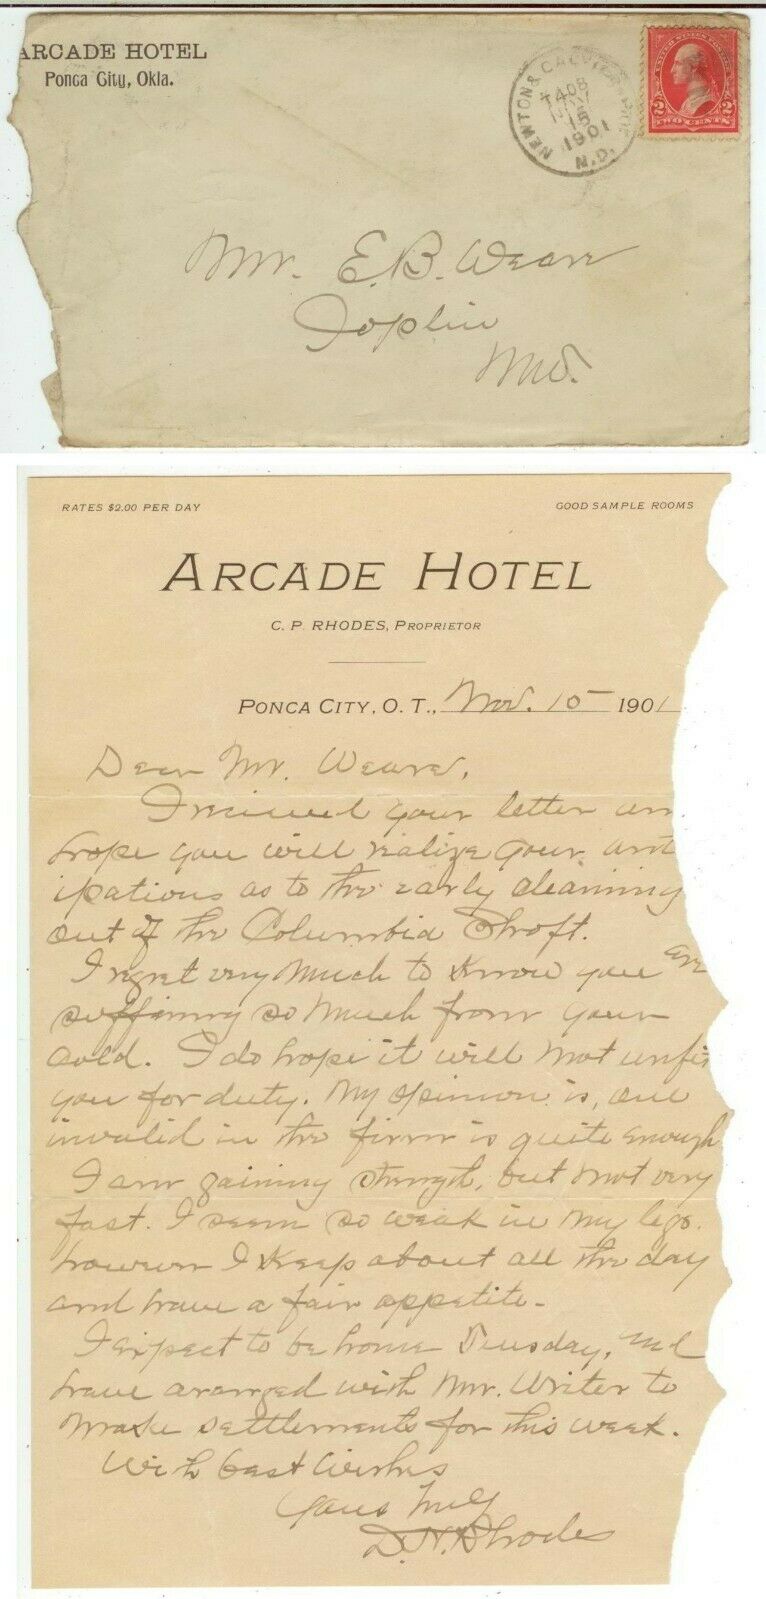 ARCADE HOTEL
Ponca City, Okla.
NEWTON &
1901
N.D.
2 2
TWO CENTS
Mr. E. B. Weare
Joplin
Mo.
RATES $2.00 PER DAY
GOOD SAMPLE ROOMS
ARCADE HOTEL
C. P. RHODES, PROPRIETOR
PONCA CITY, O. T., Nov. 15 1901
Dear Mr. Weare,
I received your letter an
hope you will realize your ant
ipations as to the early cleaning
out of the Columbia Shaft.
I regret very much to know you are
suffering so much from your
cold. I do hope it will not unfi
you for duty. My opinion is, one
invalid in the firm is quite enough
I am gaining strength, but not very
fast. I seem so weak in my legs.
however I keep about all the day
and have a fair appetite.
I expect to be home Tuesday, and
have aranged with Mr. Writer to
make settlements for this week.
With best wishes
Yours truly
D. H. Rhodes